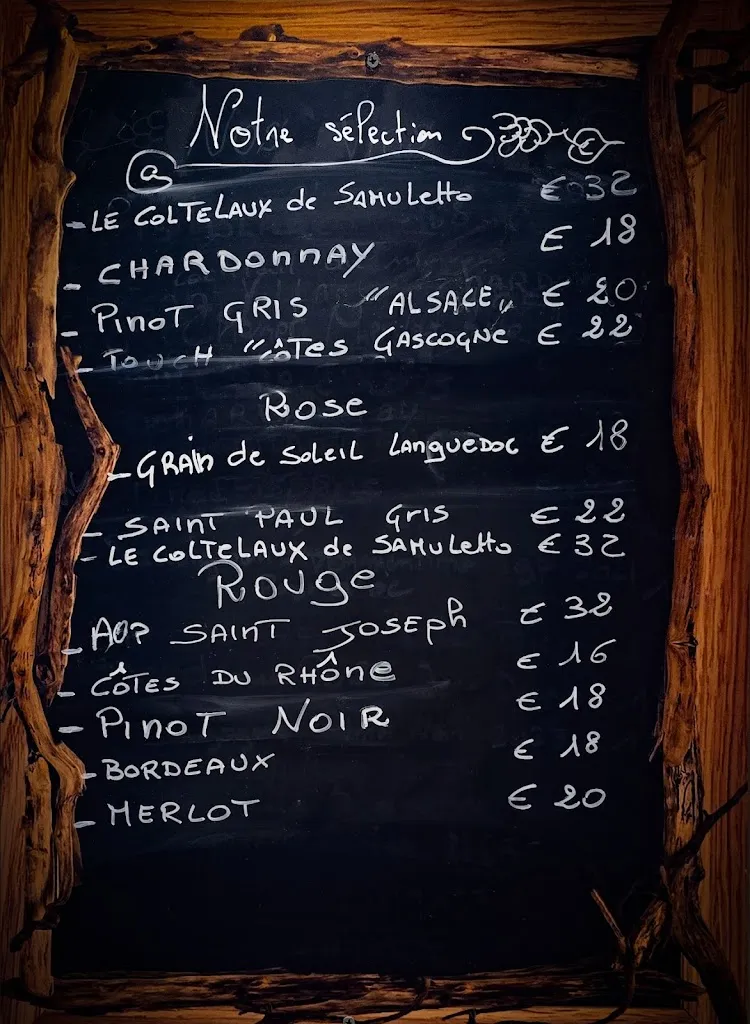 Notre sélection
- LE COLTELAUX de SAMULETTO € 32
- CHARDONNAY € 18
- PINOT GRIS "ALSACE" € 20
- TOUCH "CÔTES GASCOGNE € 22
Rose
- GRAIN de SOLEIL LANGUEDOC € 18
- SAINT PAUL GRIS € 22
- LE COLTELAUX de SAMULETTO € 32
Rouge
- AOP SAINT JOSEPH € 32
- CÔTES DU RHÔNE € 16
- PINOT NOIR € 18
- BORDEAUX € 18
- MERLOT € 20